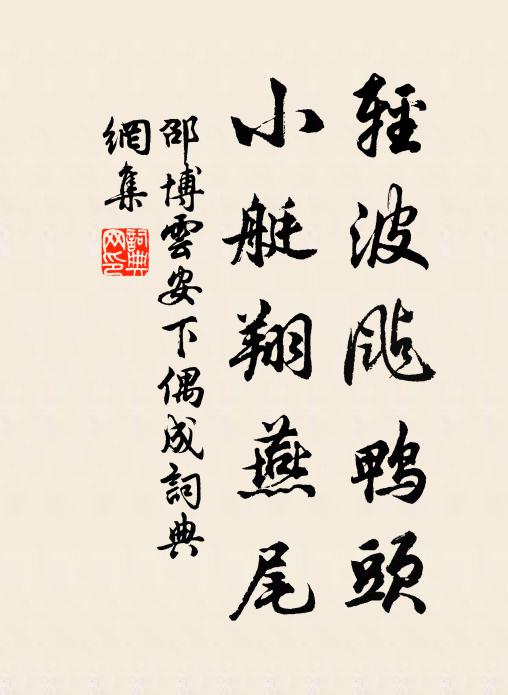 輕波颭鴨頭
小艇翔燕尾
邵博雲安下偶成詞典
網集
詞典
网印